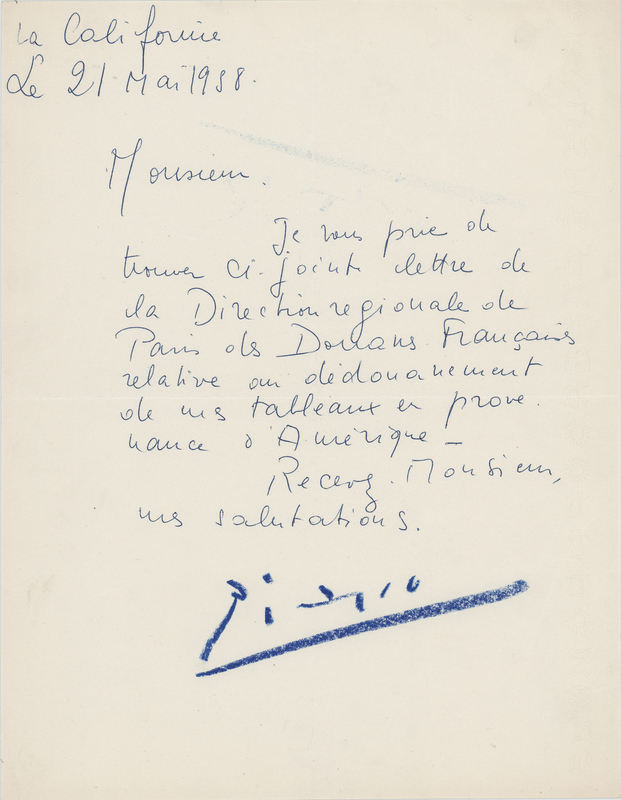 La Californie
Le 21 Mai 1958.
Monsieur.
Je vous prie de
trouver ci-joint lettre de
la Direction regionale de
Paris des Douans Françaises
relative au dédouanement
de mes tableaux en prove
nance d'Amérique -
Recevez. Monsieur,
mes salutations.
Picasso